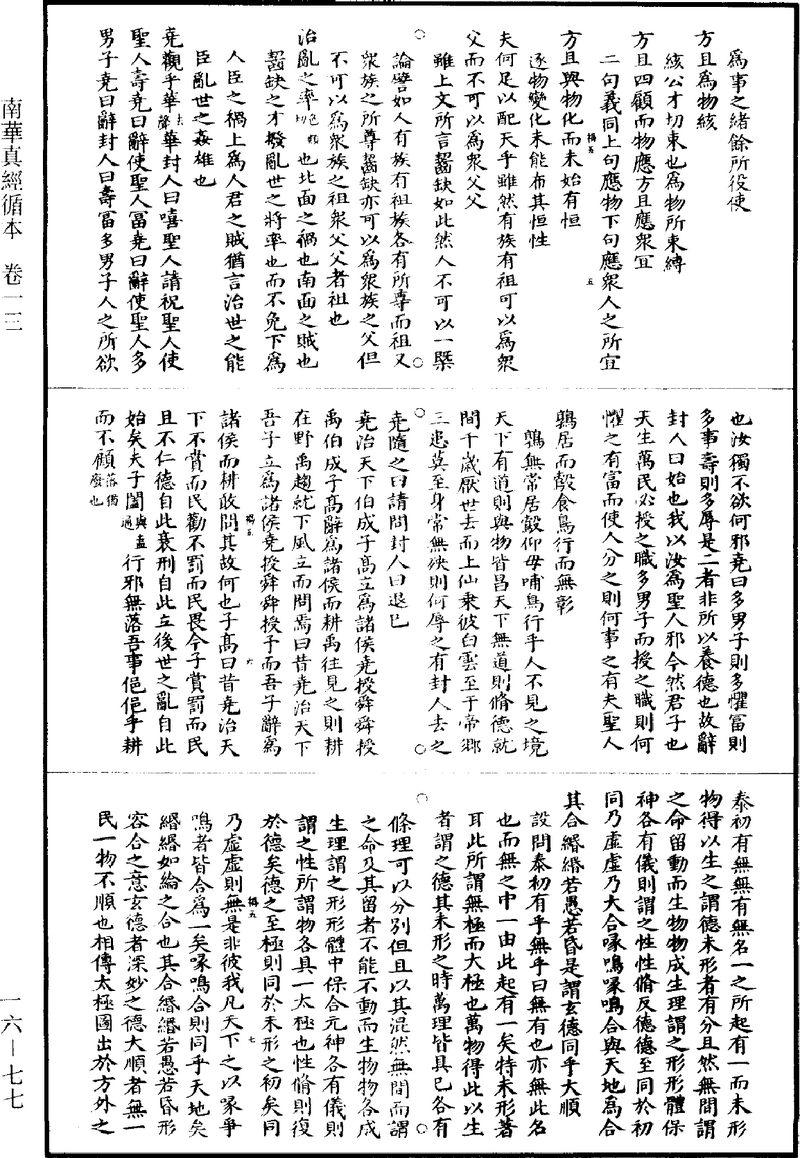 為事之緒餘所役使
方且為物絯
絯公才切束也為物所束縳
方且四顧而物應方且應衆宜
二句義同上句應物下句應衆人之所宜
方且與物化而未始有恒
逐物變化未能布其恒性
夫何足以配天乎雖然有族有祖可以為衆
父而不可以為衆父父
雖上文所言齧缺如此然人不可以一槩
論譬如人有族有祖族各有所尊而祖又
衆族之所尊齧缺亦可以為衆族之父但
不可以為衆族之祖衆父父者祖也
治亂之率也北面之禍也南面之賊也
齧缺之才撥亂世之將率也而不免下為
人臣之禍上為人君之賊猶言治世之能
臣亂世之姦雄也
堯觀乎華去聲華封人曰嘻聖人請祝聖人使
聖人壽堯曰辭使聖人冨堯曰辭使聖人多
男子堯曰辭封人曰壽冨多男子人之所欲
也汝獨不欲何邪堯曰多男子則多懼冨則
多事壽則多辱是三者非所以養德也故辭
封人曰始也我以汝為聖人邪今然君子也
天生萬民必授之職多男子而授之職則何
懼之有富而使人分之則何事之有夫聖人
鶉居而鷇食鳥行而無彰
鶉無常居鷇仰母哺鳥行乎人不見之境
天下有道則與物皆昌天下無道則脩德就
間千歲厭世去而上仙乗彼白雲至于帝鄉
三患莫至身常無殃則何辱之有封人去之
堯隨之曰請問封人曰退已
堯治天下伯成子高立為諸侯堯授舜舜授
禹伯成子高辭為諸侯而耕禹往見之則耕
在野禹趨就下風立而問焉曰昔堯治天下
吾子立為諸侯堯授舜舜授予而吾子辭為
諸侯而耕敢問其故何也子高曰昔堯治天
下不賞而民勸不罰而民畏今子賞罰而民
且不仁德自此衰刑自此立後世之亂自此
始矣夫子闔與盍通行邪無落吾事俋俋乎耕
而不顧落猶廢也
泰初有無無有無名一之所起有一而未形
物得以生之謂德未形者有分且然無間謂
之命留動而生物物成生理謂之形形體保
神各有儀則謂之性性脩反德德至同於初
同乃虛虛乃大合喙鳴喙鳴合與天地為合
其合緡緡若愚若昏是謂玄德同乎大順
設問泰初有乎無乎曰無有也亦無此名
也而無之中一由此起有一矣特未形著
耳此所謂無極而大極也萬物得此以生
者謂之德其未形之時萬理皆具已各有
條理可以分別但且以其混然無間而謂
之命及其留者不能不動而生物物各成
生理謂之形形體中保合元神各有儀則
謂之性所謂物各具一太極也性脩則復
於德矣德之至極則同於未形之初矣同
乃虛虛則無是非彼我凡天下之以喙爭
鳴者皆合為一矣喙鳴合則同乎天地矣
緡緡如綸之合也其合緡緡若愚若昏形
容合之意玄德者深妙之德大順者無一
民一物不順也相傳太極圖出於方外之
南華真經循本 卷一三
一六—七七